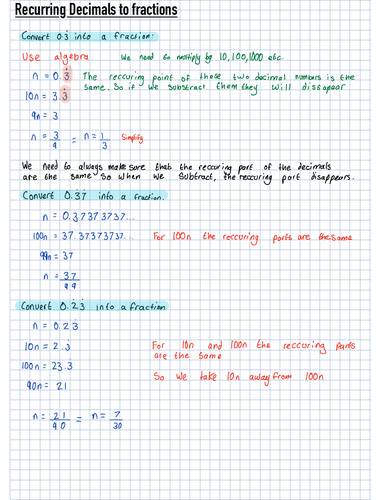 Recurring Decimals to fractions
Convert 0.3̇ into a fraction:
Use algebra We need to multiply by 10, 100, 1000 etc.
n = 0.3̇ The reccuring point of these two decimal numbers is the
same. So if we subtract them they will dissapear
10n = 3.3̇
9n = 3
n = 3/9 = n = 1/3 Simplify
We need to always make sure that the reccuring part of the decimals
are the same so when we subtract, the reccuring part disappears.
Convert 0.3̇7̇ into a fraction.
n = 0.37373737...
100n = 37.37373737... For 100n the reccuring parts are the same
99n = 37
n = 37/99
Convert 0.23̇ into a fraction
n = 0.23
10n = 2.3̇ For 10n and 100n the reccuring parts
are the same
100n = 23.3
So we take 10n away from 100n
90n = 21
n = 21/90 = n = 7/30